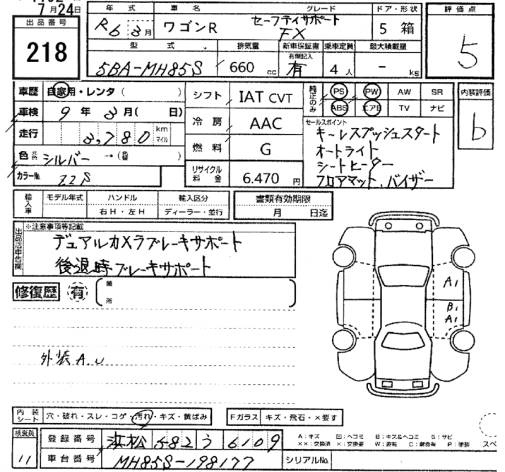 7月24日
出品番号 218
年式 車名 グレード ドア・形状 評価点
R6 3月 ワゴンR セーフティサポート FX 5 箱 5
型式 排気量 新車保証書 乗車定員 最大積載量
有無記入
5BA-MH85S 660 cc 有 4人 - kg
車歴 自家用・レンタ( )
車検 9年3月( 日)
走行 3,780 km マイル
色 シルバー → (番 )
カラー№ ZZS
シフト IAT CVT
冷房 AAC
燃料 G
リサイクル料金 6.470円
純正のみ PS PW AW SR
ABS エアB TV ナビ
内装評価 b
セールスポイント
キーレスプッシュスタート
オートライト
シートヒーター
フロアマット、バイザー
輸入車 モデル年式 ハンドル 輸入区分 書類有効期限
右H・左H ディーラー・並行 月 日迄
出品店申告欄 ※注意事項等記載
デュアルカメラブレーキサポート
後退時ブレーキサポート
修復歴 有 箇所
外装A.U
A1
B1
A1
内装シート 穴・破れ・スレ・コゲ・汚れ・キズ・黄ばみ Fガラス キズ・飛石・×要す
検査員 11
登録番号 浜松 582 う 6109
車台番号 MH85S-198177 シリアル№
A:キズ